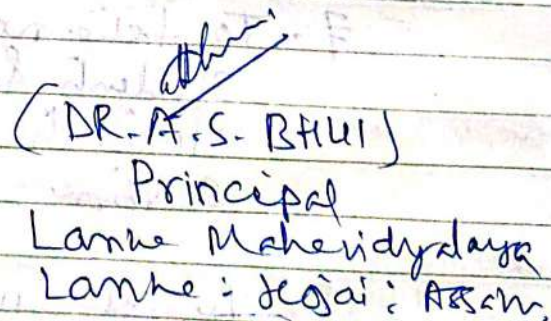 (DR. A. S. BHUI)
Principal
Lanka Mahavidyalaya
Lanka : Hojai : Assam,